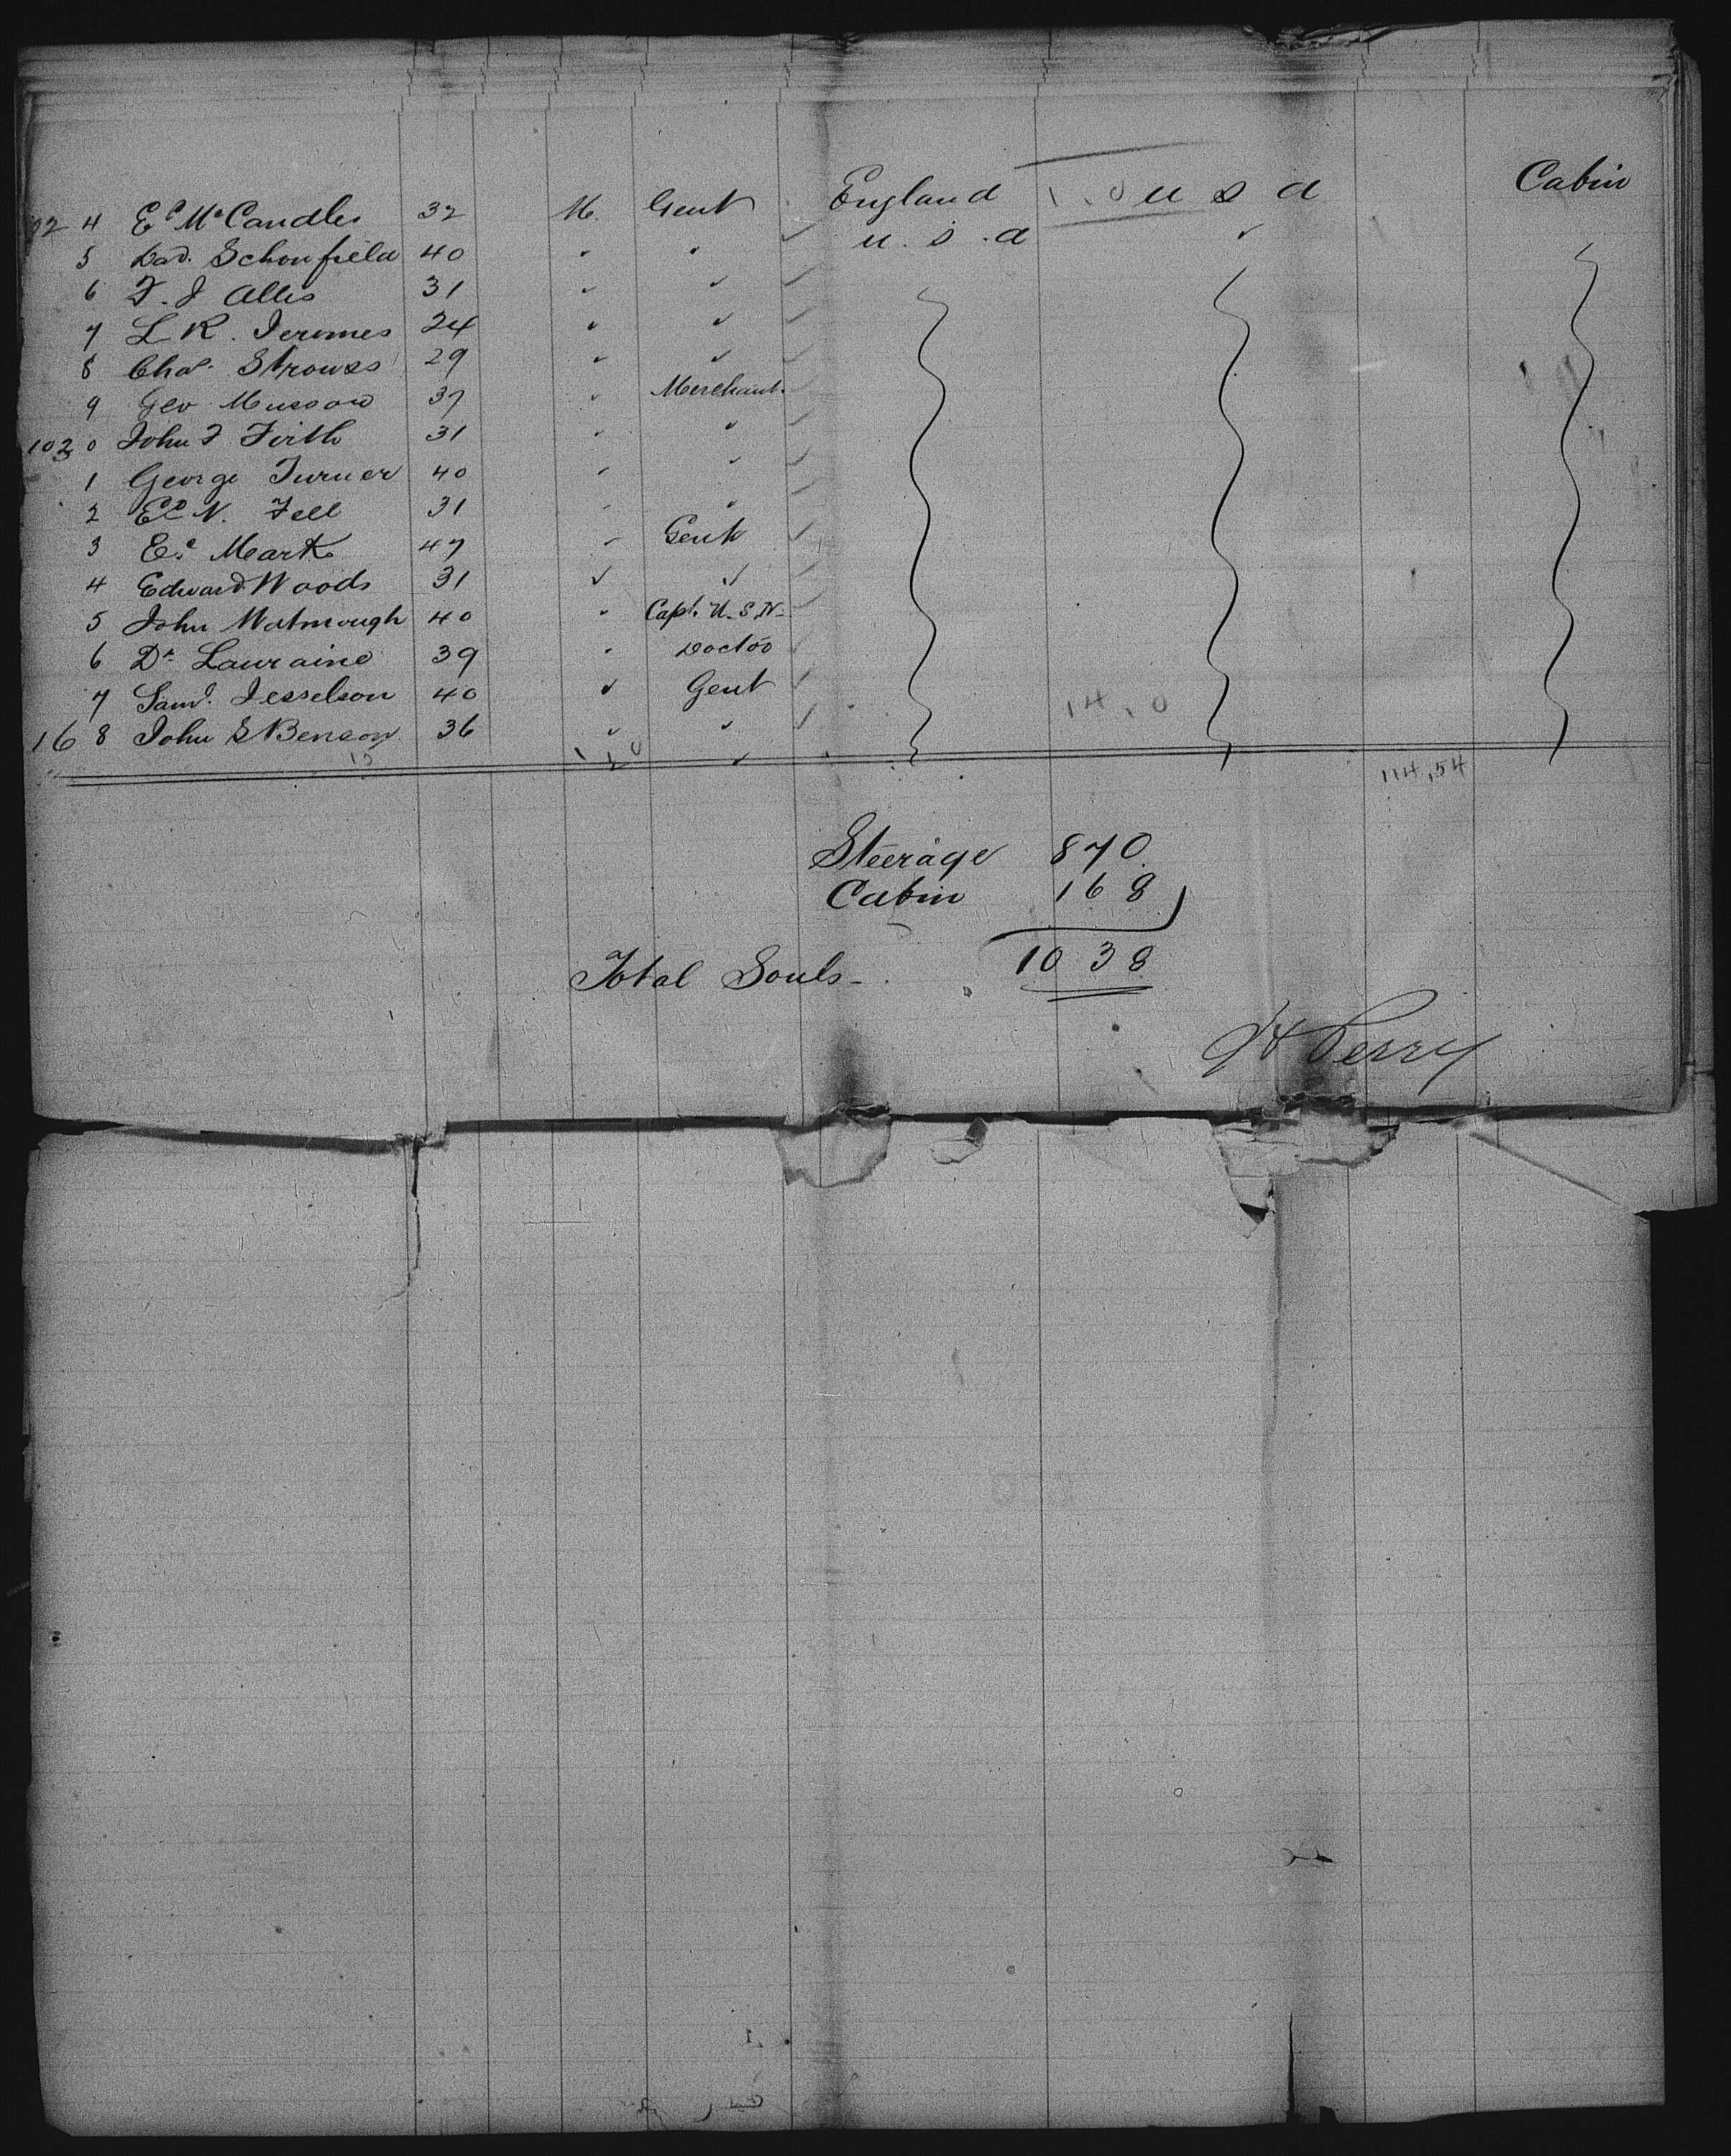 4 Ed McCandles 32 M. Gent England U S A Cabin
5 Dad. Schonfield 40 " " U.S.A "
6 F. J Alles 31 " "
7 L R. Jeromes 24 " "
8 Chas. Strouss 29 " "
9 Geo Musson 37 " Merchant
0 John F Firth 31 " "
1 George Turner 40 " "
2 Ed N. Fell 31 " "
3 Ed Marks 47 " Gent
4 Edward Woods 31 " "
5 John Watmough 40 " Capt. U.S.N.
6 Dr Lauraine 39 " Doctor
7 Saml. Jesselson 40 " Gent
16 8 John S Benson 36 " "
15
14.0
114,54
Steerage 870
Cabin 168
Total Souls 1038
Perry